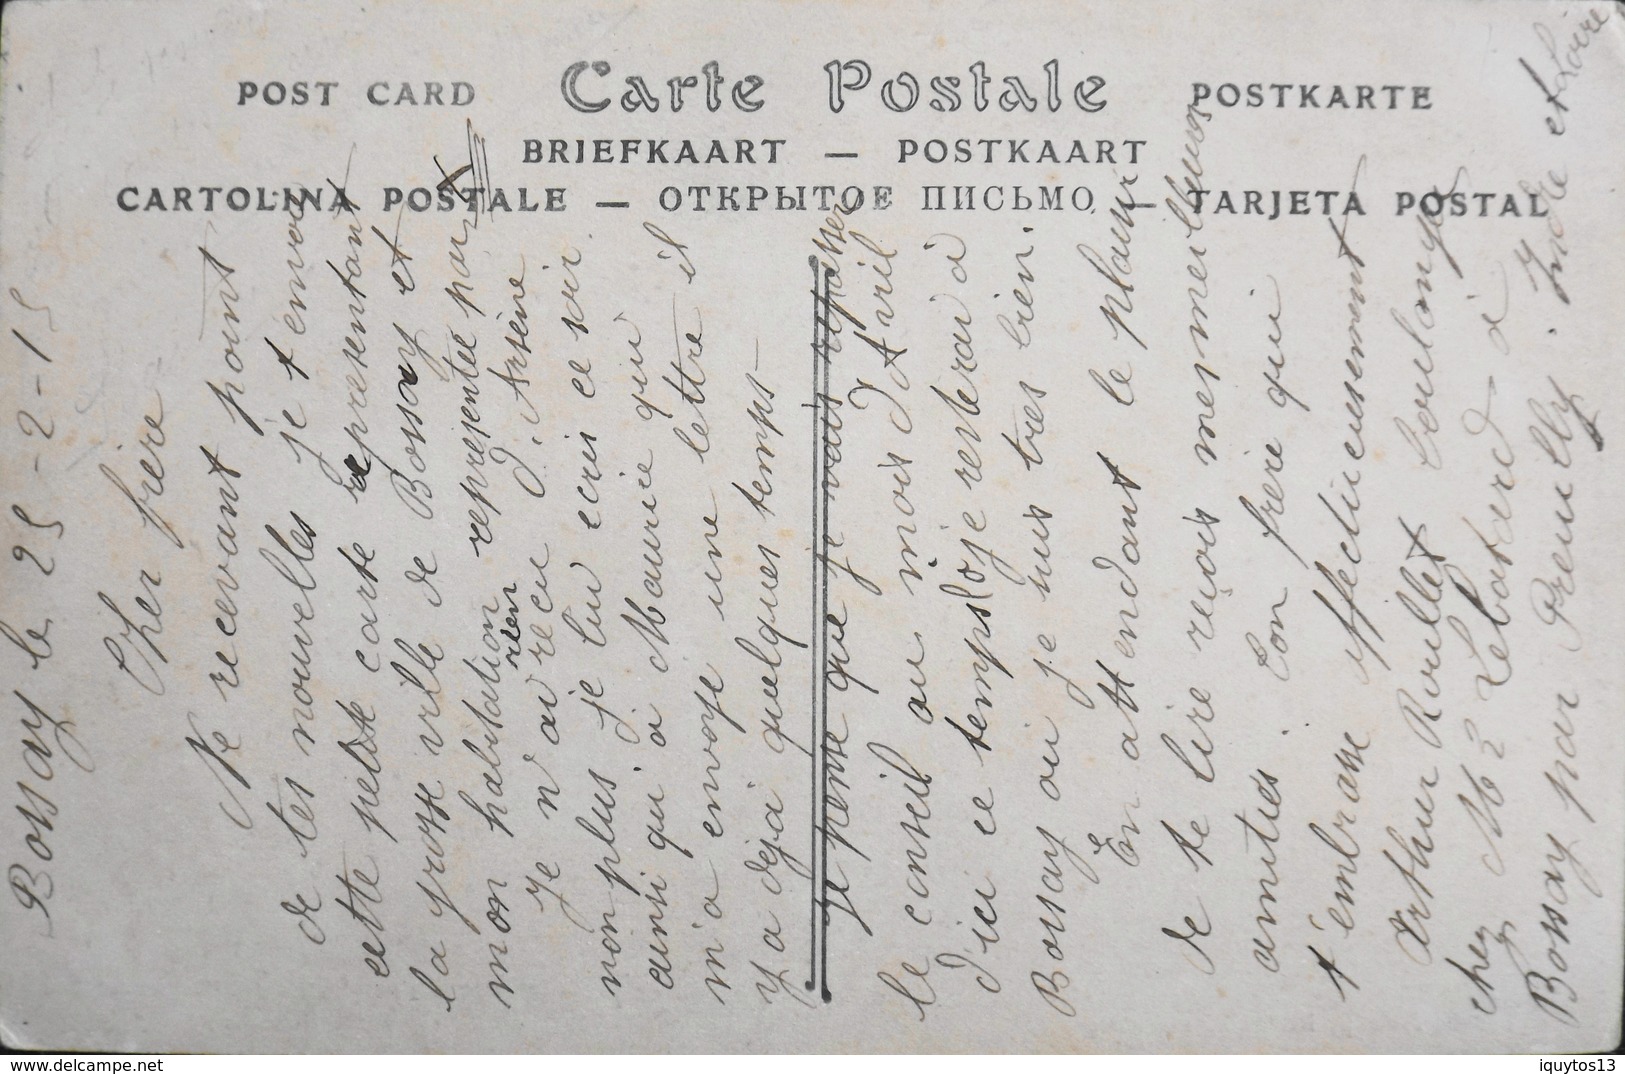 POST CARD Carte Postale POSTKARTE
BRIEFKAART — POSTKAART
CARTOLINA POSTALE — ОТКРЫТОЕ ПИСЬМО — TARJETA POSTAL
Bossay le 25-2-15
Cher frère
Ne recevant point
de tes nouvelles je t envoie
cette petite carte representant
la grosse ville de Bossay et
mon habitation representée par X
Je n ai rien recu d. Arsène
non plus je lui ecris ce soir.
ainsi qui a Maurice qui
m'a envoyé une lettre il
y a déjà quelques temps
Je pense que je vais repasser
le conseil au mois d'Avril
d'ici ce temps la je resterai à
Bossay ou je suis tres bien.
En attendant le plaisir
de te lire reçois mes meilleures
amities. Ton frère qui
t'embrasse affectueusement
Arthur Roullet Coulonge
chez Mr Lebatard à
Bossay par Preuilly. Indre et Loire
delcampe.net
iquytos13